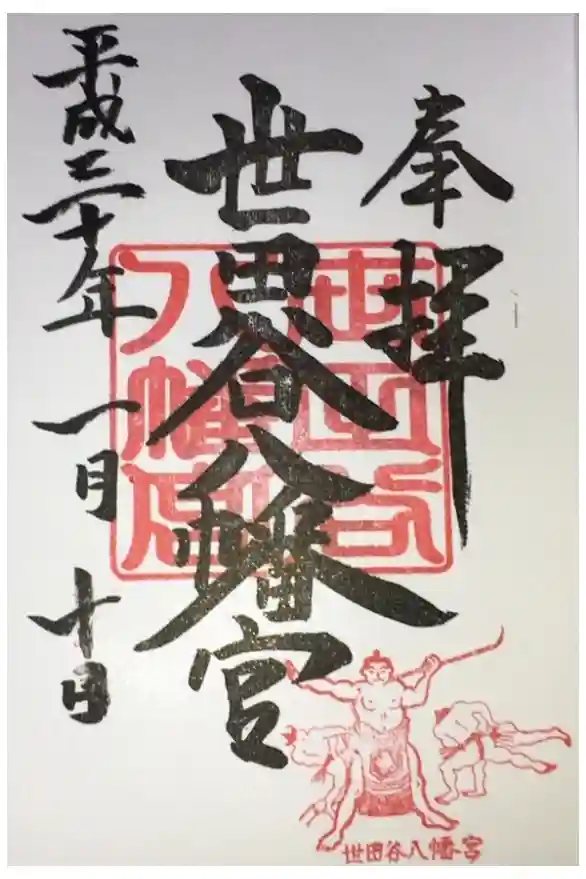 奉拝
世田谷八幡宮
世田谷
八幡宮
平成三十年 一月 十日
世田谷八幡宮